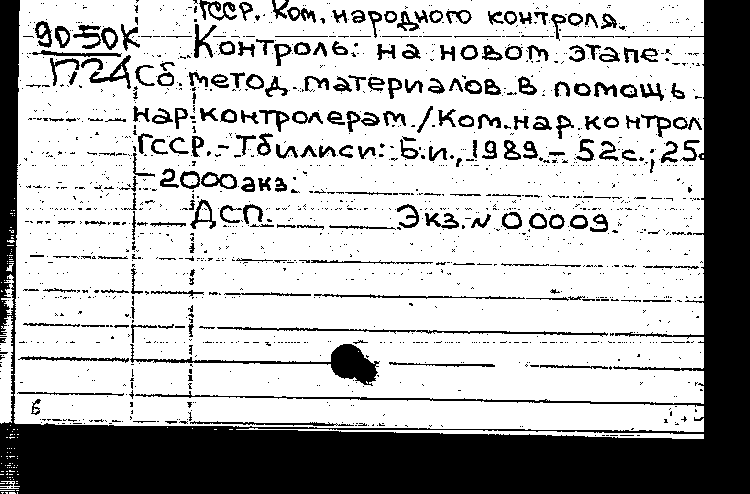 ГССР. Ком. народного контроля.
90-50К Контроль: на новом этапе:
1724 Сб. метод. материалов в помощь
нар. контролерам. / Ком. нар. контрол
ГССР. - Тбилиси: Б.и., 1989. - 52с.; 25
- 2000экз.
ДСП. Экз. N 00009.
6